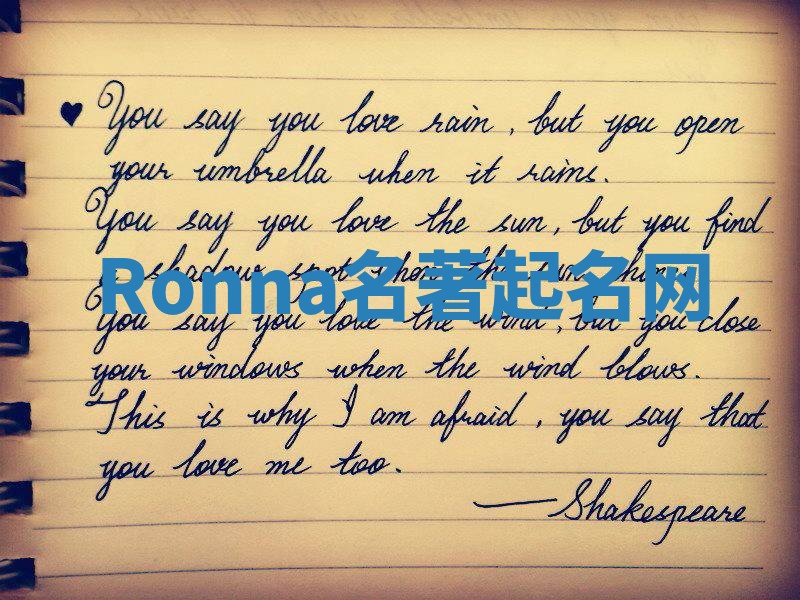 ♥ You say you love rain, but you open
your umbrella when it rains.
You say you love the sun, but you find
a shadow spot when the sun shines.
Ronna名著起名网
You say you love the wind, but you close
your windows when the wind blows.
This is why I am afraid, you say that
you love me too.
—Shakespeare